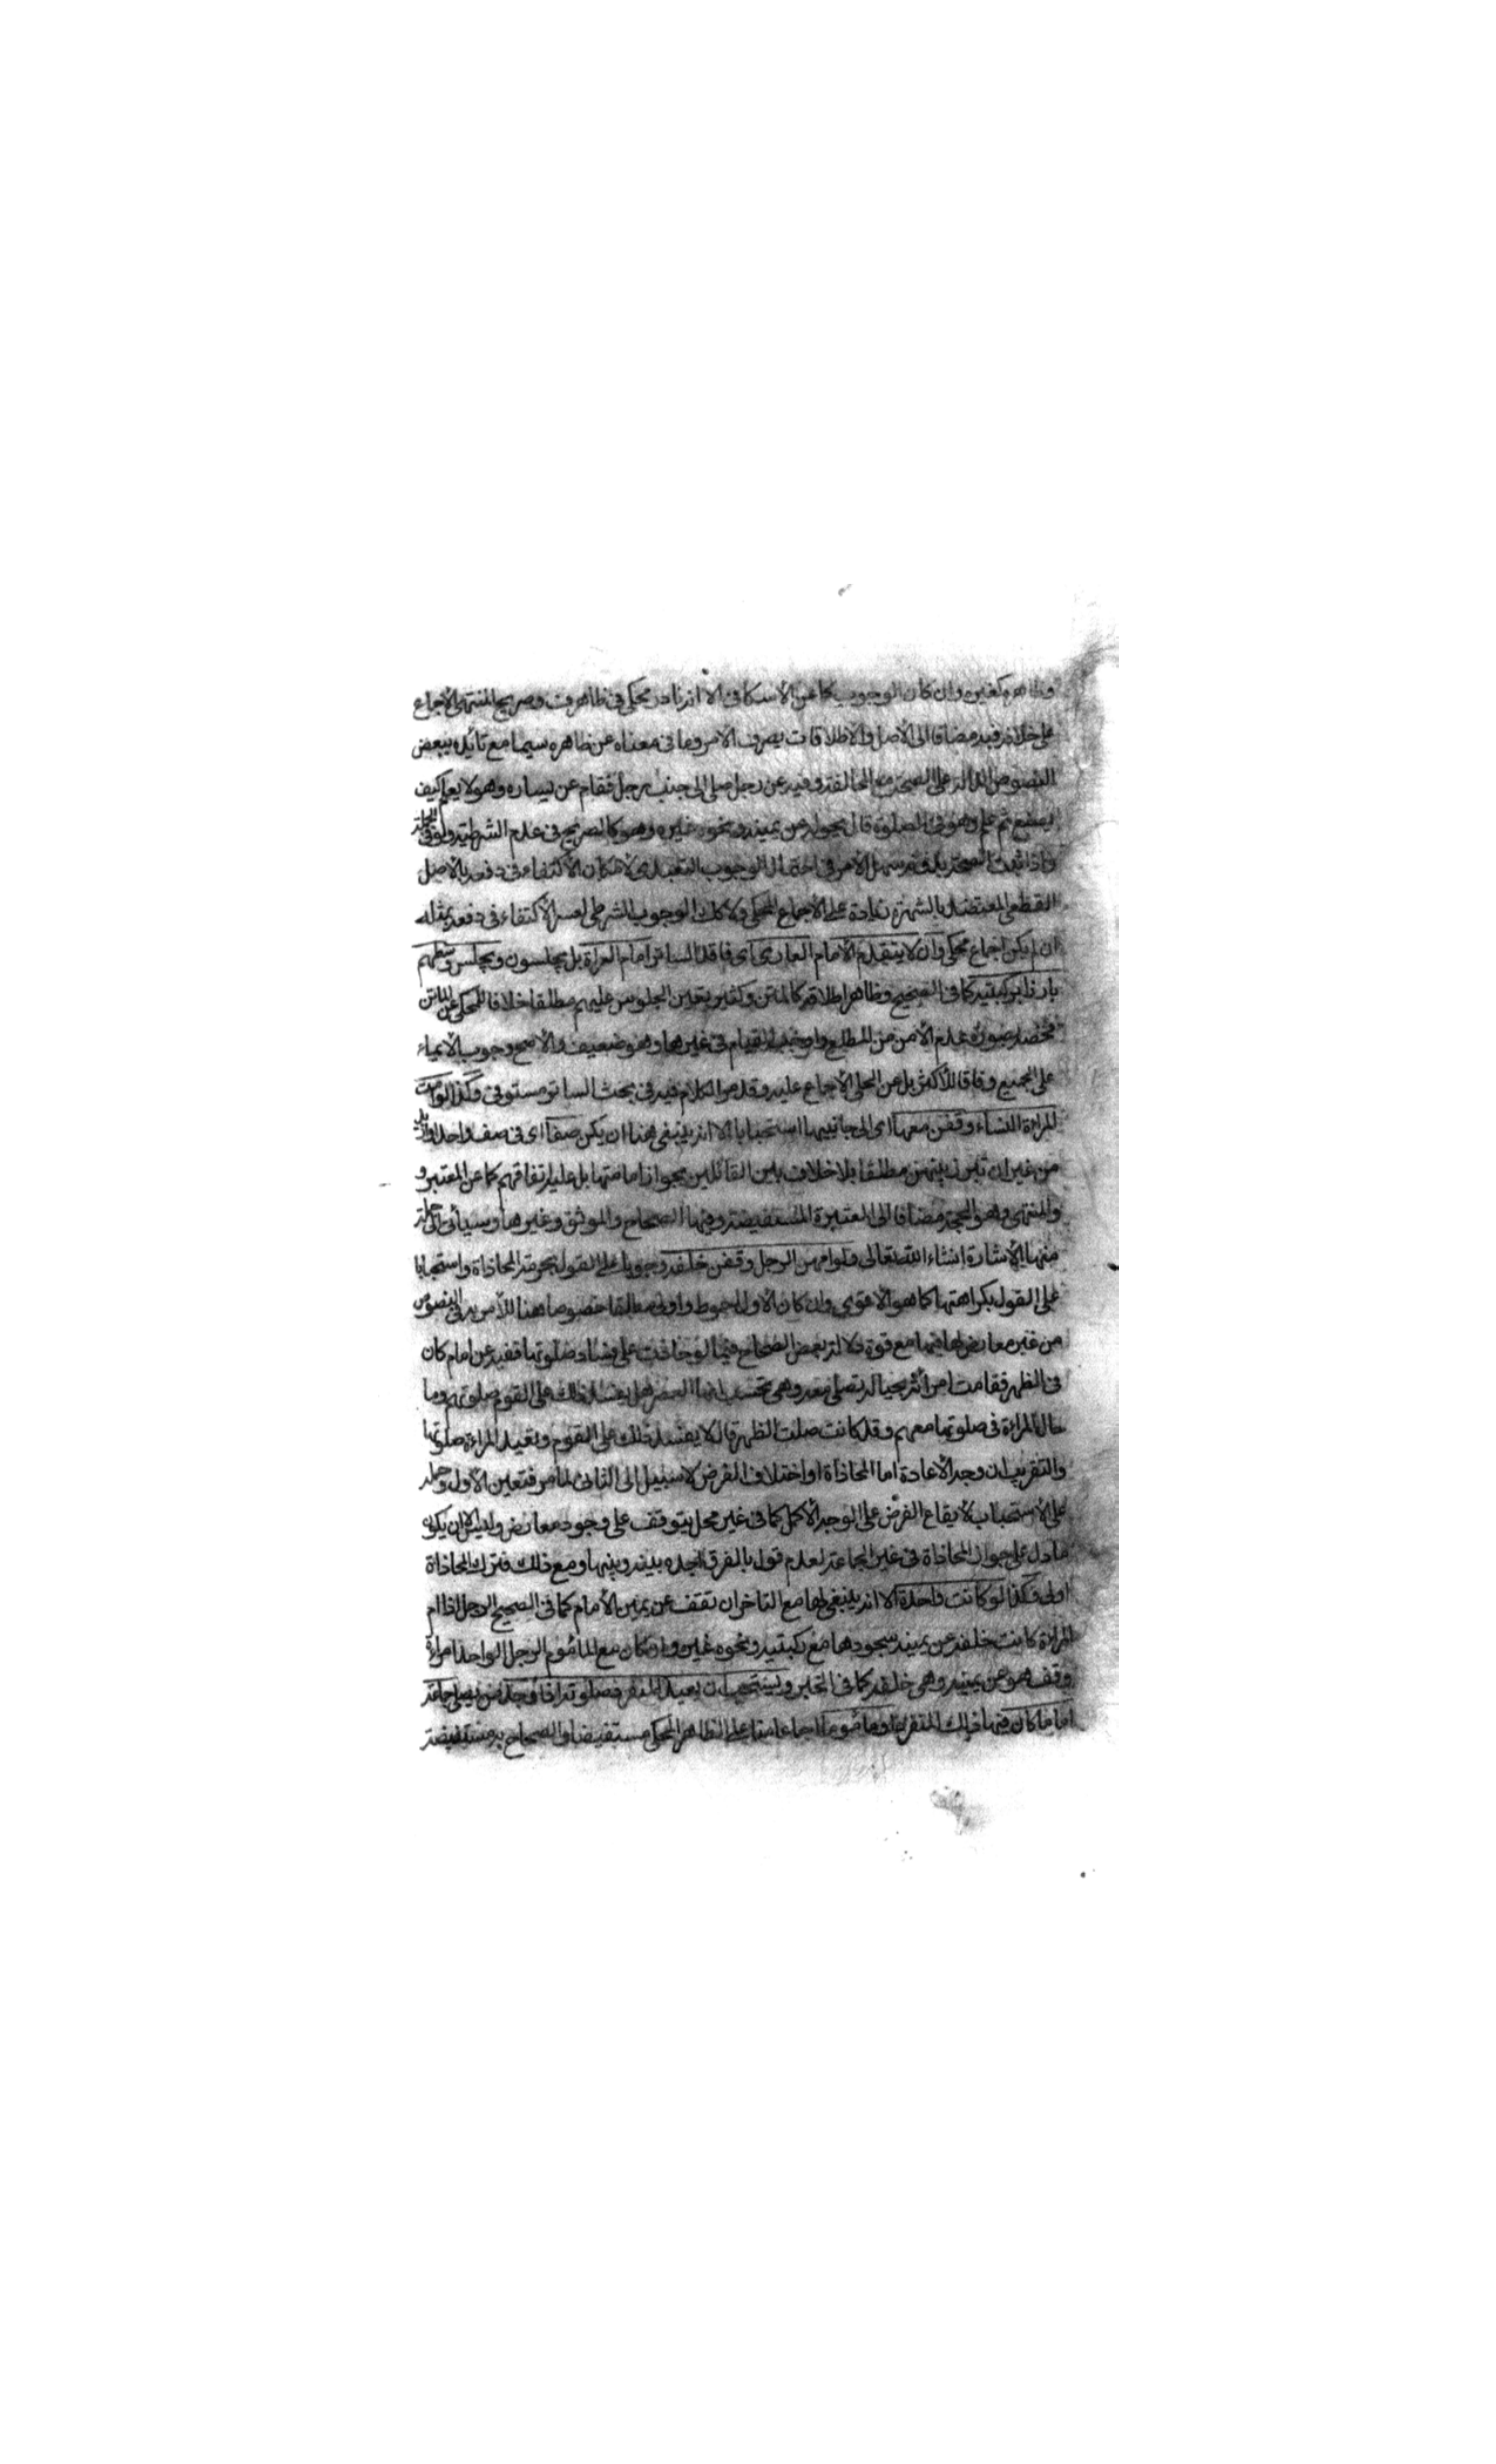 وظاهره كغيره وان كان الوجوب كما عن الاسكافى الا انه نادر محكى فى ظاهر وصريح المنتهى الاجماع
على خلافه فبه مضافا الى الاصل والاطلاقات يصرف الامر وما فى معناه عن ظاهره سيما مع تأيده ببعض
النصوص الدالة على الصحة مع المخالفة وفيه عن رجل صلى الى جنب رجل فقام عن يساره وهو لا يعلم كيف
يصنع ثم علم وهو فى الصلوة قال يحوله عن يمينه ونحوه غيره وهو كالصريح فى عدم الشرطية
واذا ثبت الصحة بدفعه سهل الامر فى احتمال الوجوب التعبدى لامكان الاكتفاء فى دفعه بالاصل
القطعى المعتضد بالشهرة زيادة على الاجماع المحكى ولا كك الوجوب الشرطى لعسر الاكتفاء فى دفعه بمثله
ان لم يكن اجماع محكى وان لا يتقدم الامام العارى اى فاقد الساتر امام العراة بل يجلسون ويجلس وسطهم
بارزا بركبتيه كما فى الصحيح وظاهر اطلاقه كالمتن وكثير يعين الجلوس عليهم مطلقا خلافا للمحكى عن
فخصه بصورة عدم الامن من المطلع واوجب القيام فى غيرها وهو ضعيف والاصح وجوب الايماء
على الجميع وفاقا للاكثر بل عن الحلى الاجماع عليه وقد مر الكلام فيه فى بحث الساتر مستوفى وكذا لو امت
المراءة النساء وقفن معها اى الى جانبيها استحبابا الا انه ينبغى هنا ان يكن صفا اى فى صف واحد او ازيد
من غير ان تبرز بينهن مطلقا بلا خلاف بين القائلين بجواز امامتها بل عليه اتفاقهم كما عن المعتبر و
والمنتهى وهو الحجة مضافا الى المعتبرة المستفيضة وفيها الصحاح والموثق وغيرها وسيأتى الى جملة
منها الاشارة انشاء الله تعالى ولو امهن الرجل وقفن خلفه وجوبا على القول بحرمة المحاذاة واستحبابا
على القول بكراهتها كما هو الاقوى وان كان الاول احوط واولى مطلقا خصوصا هنا للامر به فى النصوص
من غير معارض لها فيها مع قوة دلالة بعض الصحاح فيما لو خالفت على فساد صلوتها ففيه عن امام كان
فى الظهر فقامت امرأته بحياله تصلى معه وهى تحسب انها العصر هل يفسد ذلك على القوم صلوتهم وما
حال المراءة فى صلوتها معهم وقد كانت صلت الظهر قال لا يفسد ذلك على القوم وتعيد المراءة صلوتها
والتقريب ان وجه الاعادة اما المحاذاة او اختلاف الفرض لا سبيل الى الثانى لما مر فتعين الاول وحمله
على الاستحباب لايقاع الفرض على الوجه الاكمل كما فى غير محل يتوقف على وجود معارض وليس الا ان يكون
ما دل على جواز المحاذاة فى غير الجماعة لعدم قول بالفرق اجده بينه وبينها ومع ذلك فترك المحاذاة
اولى وكذا لو كانت واحدة الا انه ينبغى لها مع التاخر ان تقف عن يمين الامام كما فى الصحيح الرجل اذا ام
المراءة كانت خلفه عن يمينه سجودها مع ركبتيه ونحوه غيره وان كان مع المأموم الرجل الواحد امراءة
وقف هو عن يمينه وهى خلفه كما فى الخبر ويستحب ان يعيد المنفرد صلوته اذا وجد من يصلى جماعة
اماما كان فيها ذلك المنفرد او مأموما اجماعا منا على الظاهر المحكى مستفيضا والصحاح به مستفيضة